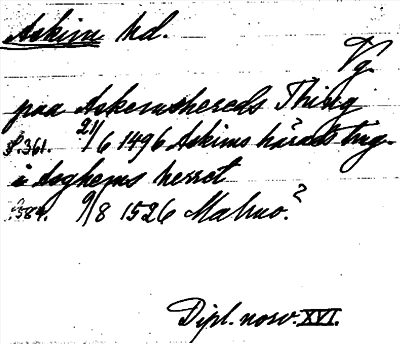 Askim hd.
Vg.
paa Askemshereds Thing
s. 361. 21/6 1496 Askims härads ting.
i Asghems herret
s. 384. 9/8 1526 Malmö?
Dipl. norv. XVI.